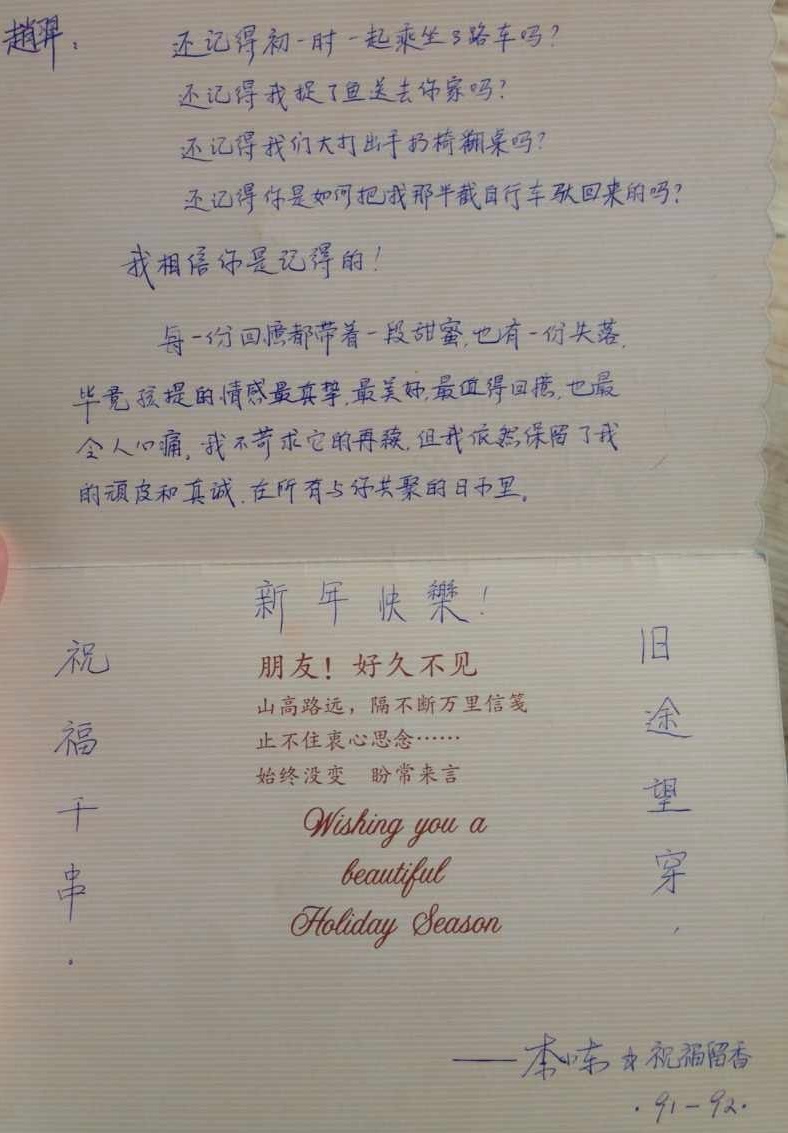 赵羿：
还记得初一时一起乘坐3路车吗？
还记得我捉了鱼送去你家吗？
还记得我们大打出手扔椅翻桌吗？
还记得你是如何把我那半截自行车驮回来的吗？
我相信你是记得的！
每一份回忆都带着一段甜蜜,也有一份失落,
毕竟孩提的情感最真挚,最美好,最值得回忆,也最
令人心痛,我不苛求它的再续,但我依然保留了我
的顽皮和真诚.在所有与你共聚的日子里。
新年快樂！
旧途望穿,
祝福千串.
朋友！好久不见
山高路远，隔不断万里信笺
止不住衷心思念……
始终没变 盼常来言
Wishing you a
beautiful
Holiday Season
——李 祝福留香
.91-92.